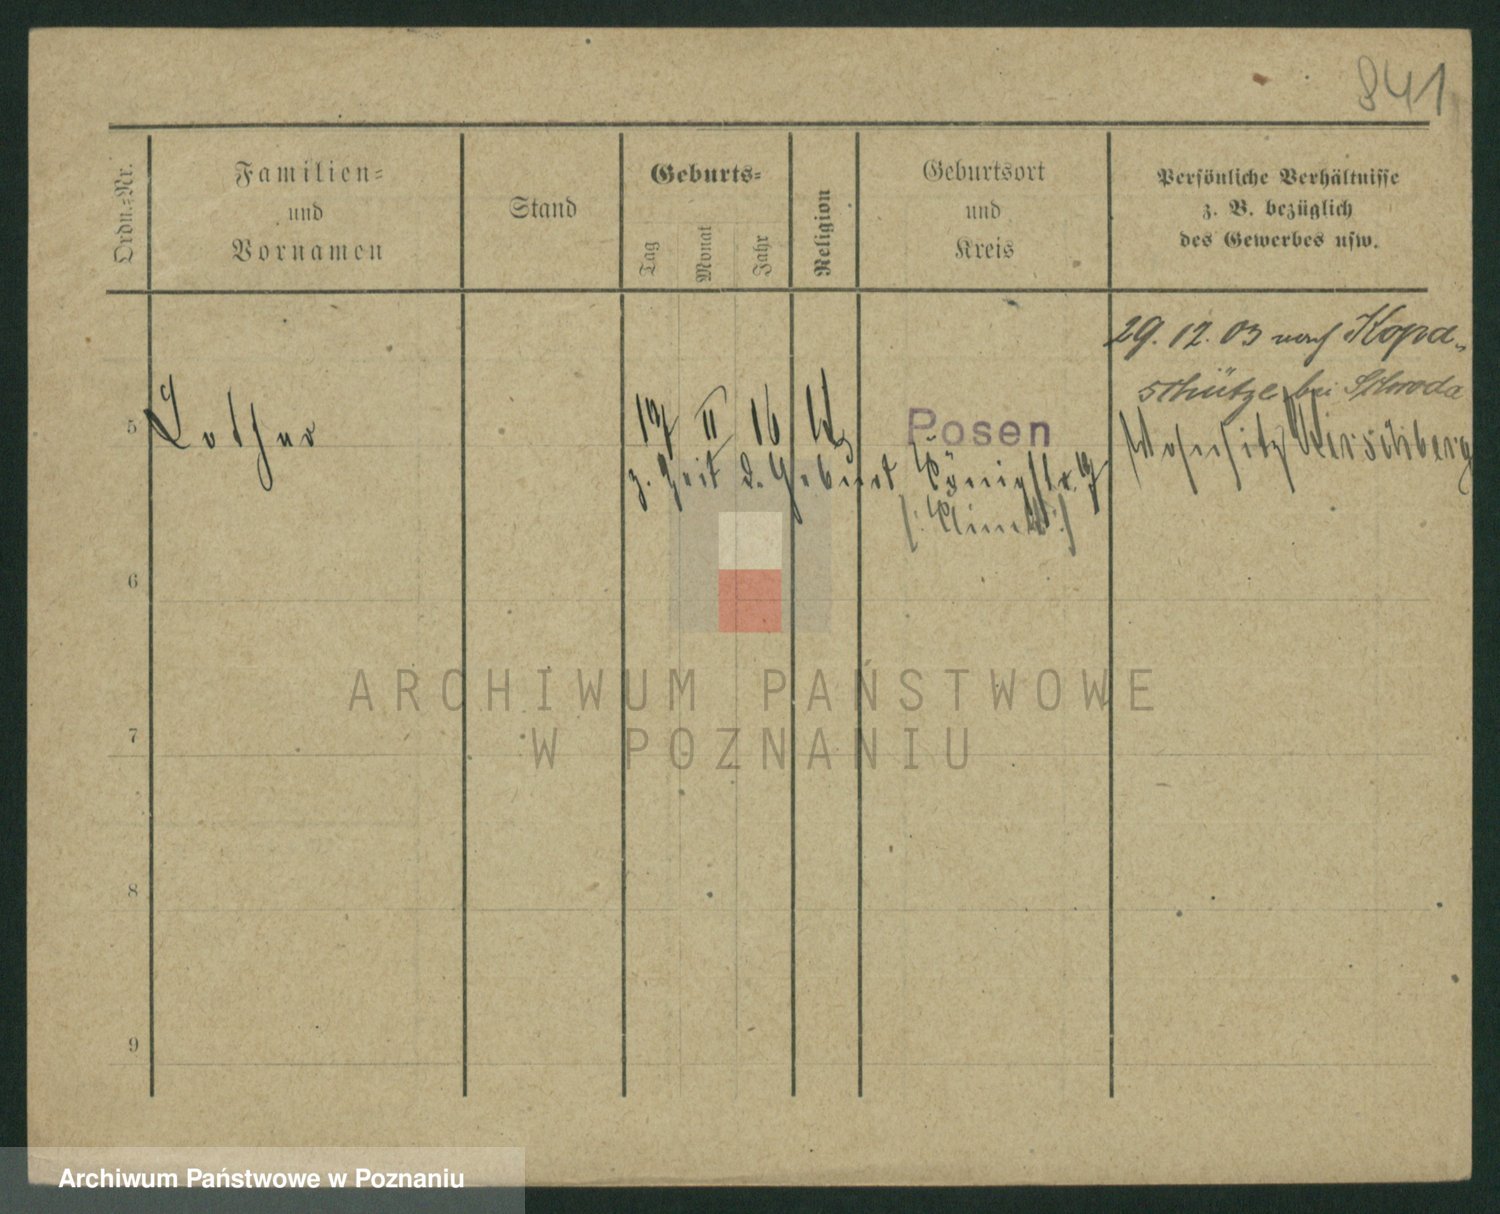 841
Ordn.-Nr.
Familien-
und
Vornamen
Stand
Geburts-
Tag
Monat
Jahr
Religion
Geburtsort
und
Kreis
Persönliche Verhältnisse
z. B. bezüglich
des Gewerbes usw.
29. 12. 03 nach Kopa-
schütze bei Schroda
5 Lothar 17 II 16 Posen Wohnsitz Hirschberg
z. Zeit d. Geburt Königstr. 17
6
7
8
9
ARCHIWUM PAŃSTWOWE
W POZNANIU
Archiwum Państwowe w Poznaniu